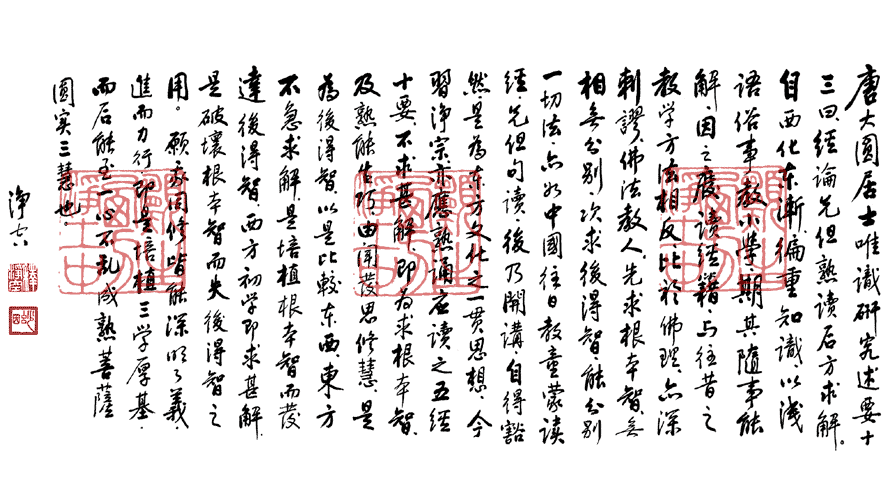 唐大圓居士唯識研究述要十
三曰、經論先但熟讀后方求解。
自西化东漸、偏重知識、以淺
語俗事教小學、期其隨事能
解、因之廢讀經籍、与往昔之
教學方法相反、比於佛理、亦深
刺謬、佛法教人、先求根本智、無
相無分別、次求後得智、能分別
一切法、亦如中國往日教童蒙讀
經先但句讀、後乃開講、自得豁
然、是為东方文化之一貫思想、今
習淨宗亦應熟誦應讀之五經
十要、不求甚解、即為求根本智、
及熟能生巧、由聞發思修慧、是
為後得智、以是比較东西、東方
不急求解、是培植根本智而發
達後得智、西方初學即求甚解、
是破壞根本智而失後得智之
用。願我同修皆能深明了義、
進而力行、即是培植三學厚基、
而后能至一心不亂、成熟菩薩
圓实三慧也。
淨空